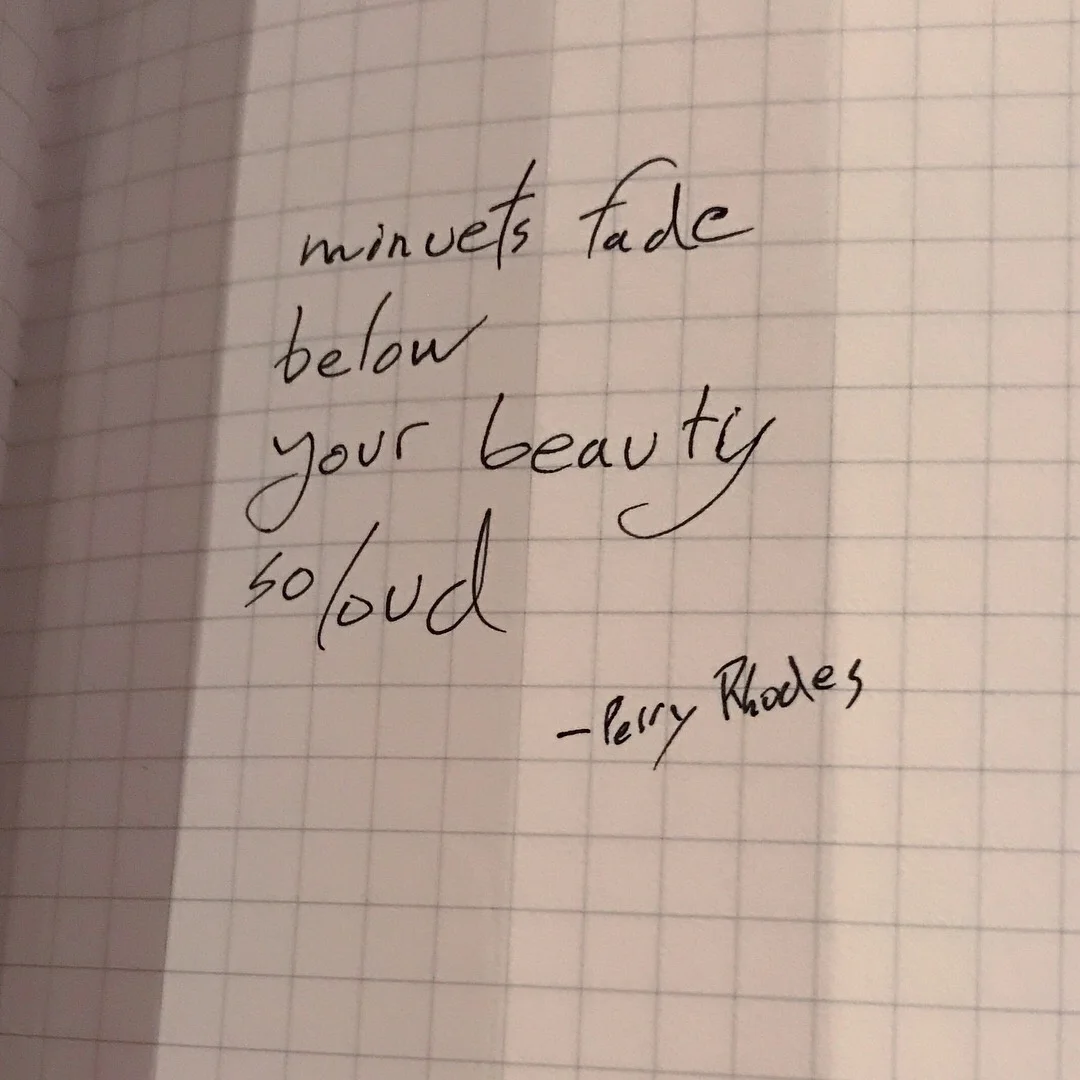 minuets fade
below
your beauty
so loud
-Perry Rhodes